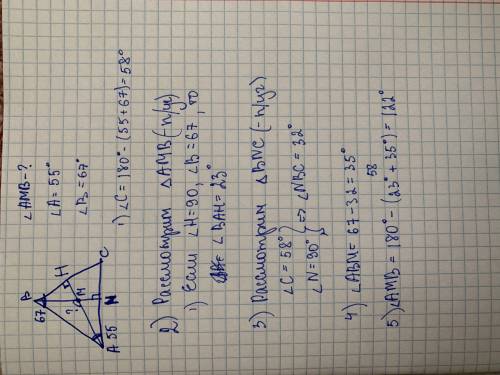 ∠AMB-?
∠A=55°
∠B=67°
B
67
H
?
M
A 55
N
C
1) ∠C=180°-(55+67)=58°
2) Рассмотрим △AMB(-п/уг)
1) Если ∠H=90, ∠B=67, то
∠BAH=23°
3) Рассмотрим △BNC(-п/уг)
∠C=58° } => ∠NBC=32°
∠N=90°
4) ∠ABM=67-32=35°
58
5) ∠AMB=180°-(23°+35°)=122°